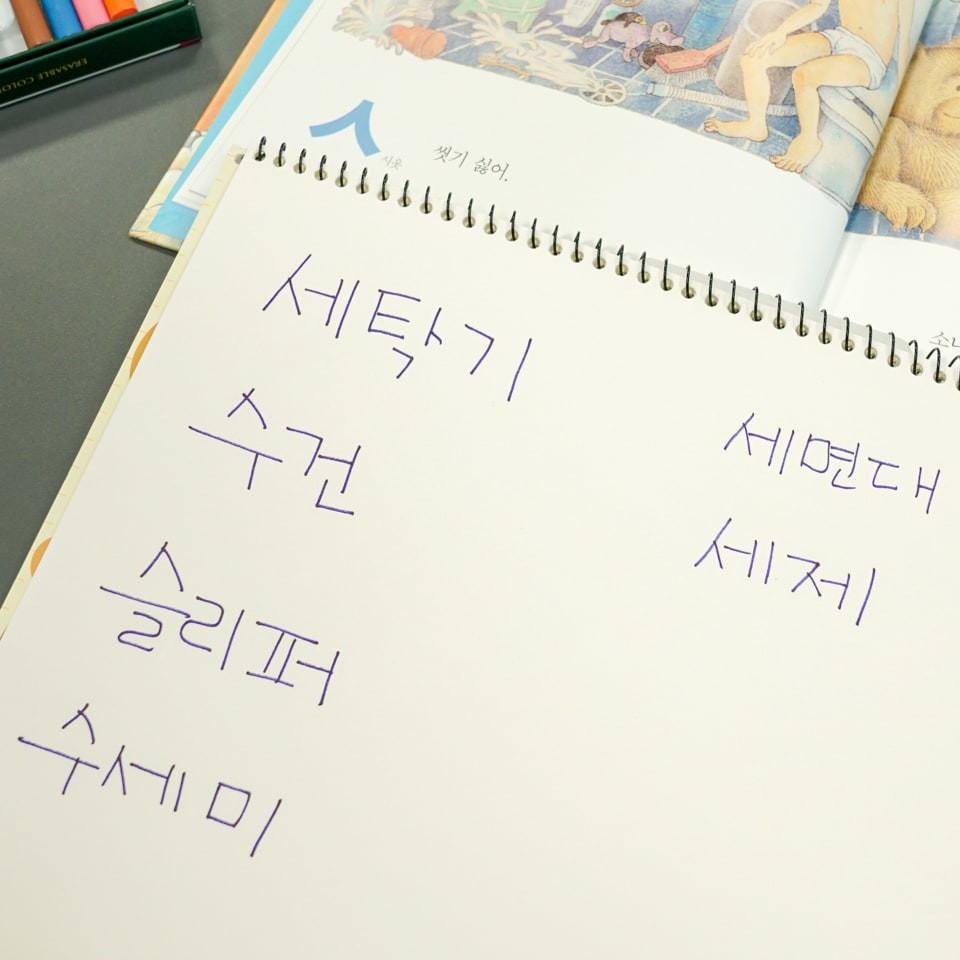 ERASABLE COLO
ㅅ
시옷
씻기 싫어.
세탁기
수건
슬리퍼
수세미
세면대
세제